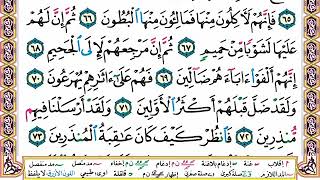 ٦٥ فَإِنَّهُمْ لَآكِلُونَ مِنْهَا فَمَالِـُٔونَ مِنْهَا ٱلْبُطُونَ ٦٦ ثُمَّ إِنَّ لَهُمْ
عَلَيْهَا لَشَوْبًا مِّنْ حَمِيمٍ ٦٧ ثُمَّ إِنَّ مَرْجِعَهُمْ لَإِلَى ٱلْجَحِيمِ ٦٨
إِنَّهُمْ أَلْفَوْا۟ ءَابَآءَهُمْ ضَآلِّينَ ٦٩ فَهُمْ عَلَىٰٓ ءَاثَٰرِهِمْ يُهْرَعُونَ ٧٠
وَلَقَدْ ضَلَّ قَبْلَهُمْ أَكْثَرُ ٱلْأَوَّلِينَ ٧١ وَلَقَدْ أَرْسَلْنَا فِيهِم
مُّنذِرِينَ ٧٢ فَٱنظُرْ كَيْفَ كَانَ عَٰقِبَةُ ٱلْمُنذَرِينَ ٧٣